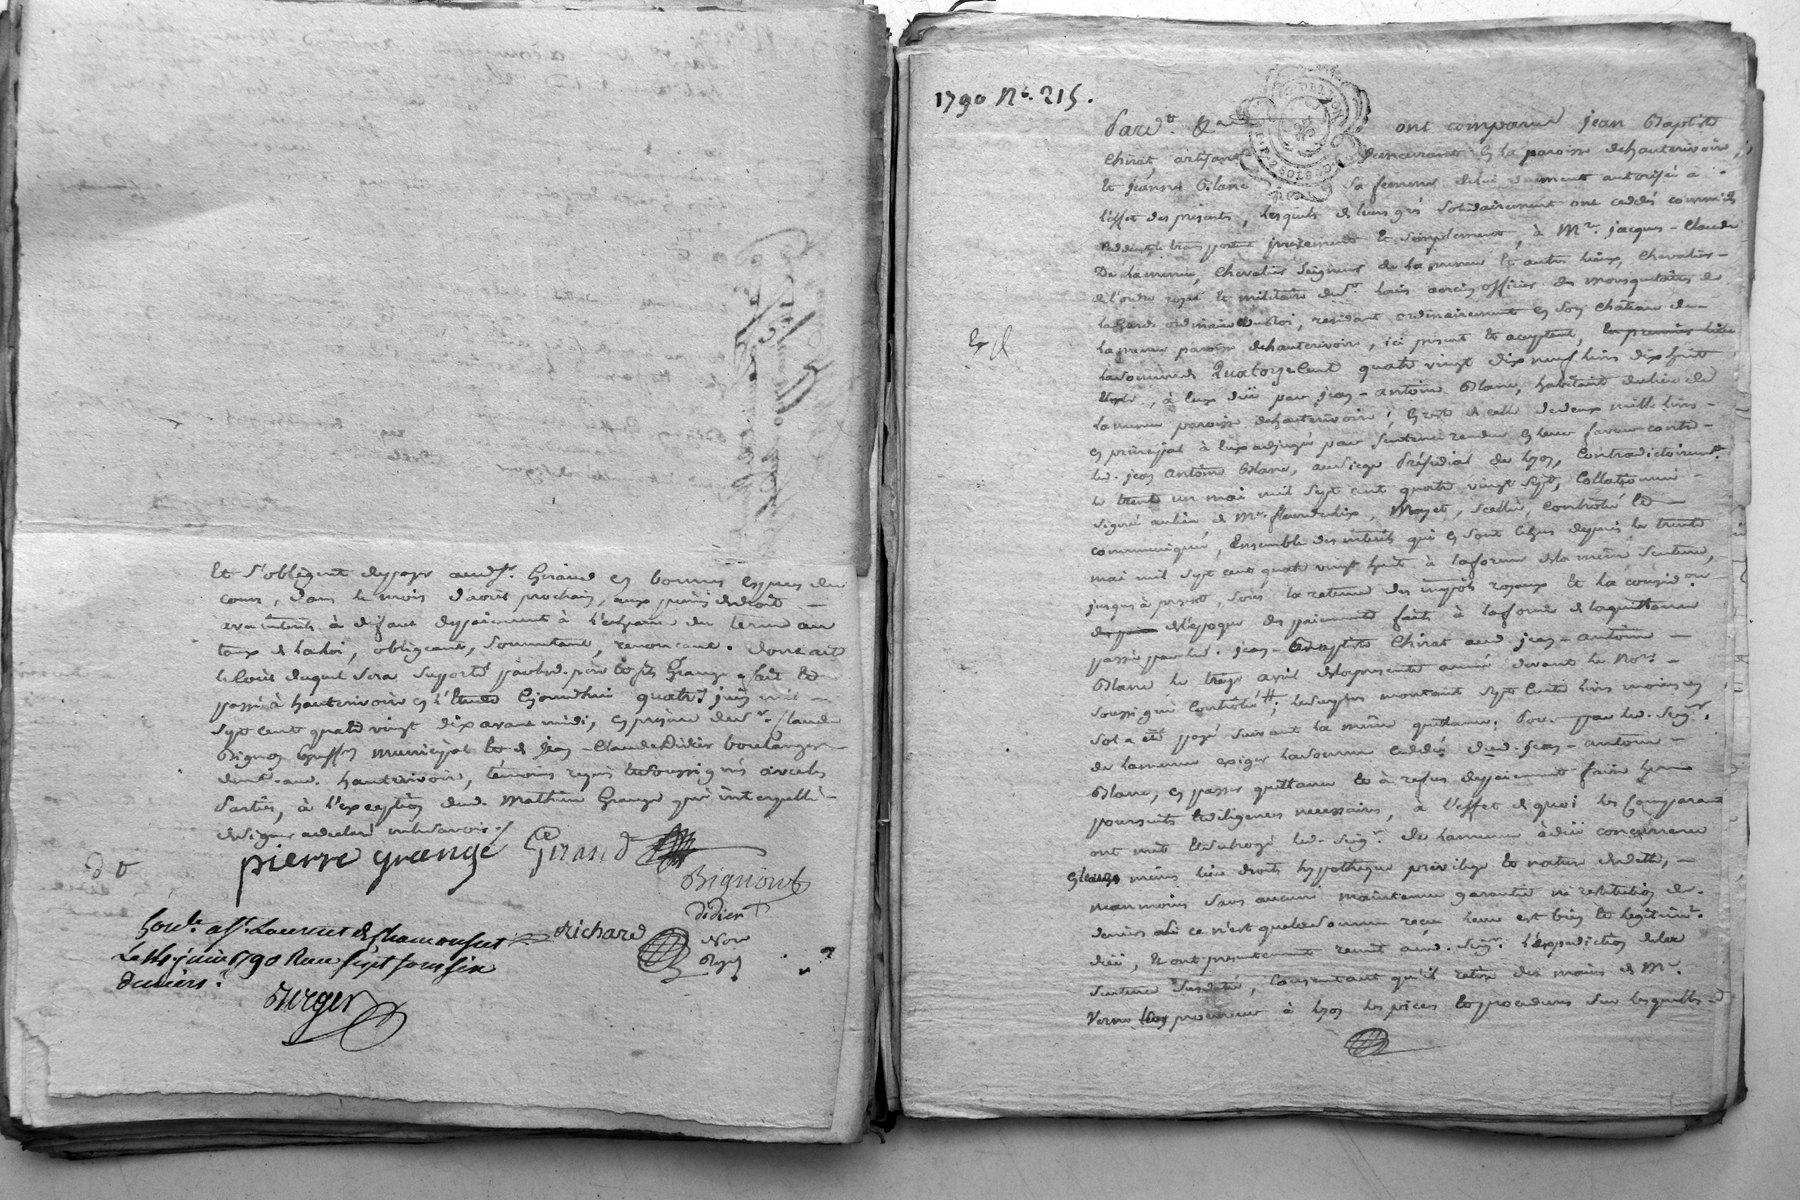 Et s'obligent de payer aud. sr. Giraud en bonnes especes du
cours, dans le mois d'aout prochain, aux peines de droit
et aux interets à defaut de paiement à l'echeance du terme au
taux de la loi, obligeant, soumettant, renonçant. dont acte
le cout duquel sera supporté par lesd. pere et fils Grange, fait et
passé à hauterivoire en l'Etude cejourdhui quatre juin mil
sept cent quatre vingt dix avant midi, en presence de sr. Claude
Bignon officier municipal et de Jean-Claude Didier boulanger
demt. aud. hauterivoire, temoins requis et soussignés avec les
Parties, à l'exception dud. Mathieu Grange qui interpellé
de signer a declaré ne le savoir.
pierre grange Giraud
Bignon
didier
Richard
Con.le a St. Laurent de Chamousset
Le 14 juin 1790 Reçu sept sous six
deniers.
Berger
1790 N°. 215.
Pardt. &a ont comparu jean Baptiste
Chirat, artisan demeurant en la paroisse de hauterivoire,
Et Jeanne Blanc sa femme de lui dument autorisée à
l'effet des presentes, lesquels de leurs gré solidairement ont cedé comme ils
cedent et transportent purement et simplement, à Mr. jacques-Claude
De lamenue, Chevalier Seigneur de lamenue et autres lieux, Chevalier
de l'ordre royal et militaire de st. louis ancien officier des mousquetaires de
la garde ordinaire du Roi, residant ordinairement en son Chateau de
lamenue paroisse de hauterivoire, ici present et acceptant,
la somme de Quatorze Cent quatre vingt dix neuf livres dix huit
sols, à eux dûe par jean-antoine Blanc, habitant du lieu de
lamenue paroisse de hauterivoire; Reste de celle de deux mille livres
en principal à eux adjugée par sentence rendue en leur faveur contre
led. jean Antoine Blanc, au siege Présidial de lyon, Contradictoiremt.
le trente un mai mil sept cent quatre vingt sept, Collationné
signé au lieu de Mr. Mayet, scellée, controlée et
communiquée, Ensemble des interets qui en sont echus depuis le trente
mai mil sept cent quatre vingt huit à la forme de la même sentence,
jusques à present, sous la retenue des impots royaux et la consid.on
de l'epoque des paiements faits à la forme de la quittance
passée par led. jean-Baptiste Chirat aud. jean-antoine
Blanc le treze avril de la presente année devant le Nore.
soussigné controlé; le surplus montant sept Cents livres moins un
sol a eté payé suivant la même quittance. Pour par led. Seigr.
de lamenue exiger la somme cedée dud. jean-antoine
Blanc, en passer quittance et à refus de paiement faire
poursuites et diligences necessaires, à l'effet de quoi les Comparants
ont mis et subrogé led. Seigr. de lamenue à dûe concurrence
en leurs mêmes lieu droits hypotheque privilege et nature de dette,
neanmoins sans aucune maintenue garantie ni restitution de
deniers si ce n'est que la somme reçue leur est bien et legitimt.
dûe, Et ont presentement remis aud. Seigr. l'expedition de lad.
sentence susdatée, consentant qu'il retire des mains de Mr.
Verne procureur à lyon les pieces et procedures sur lesquelles